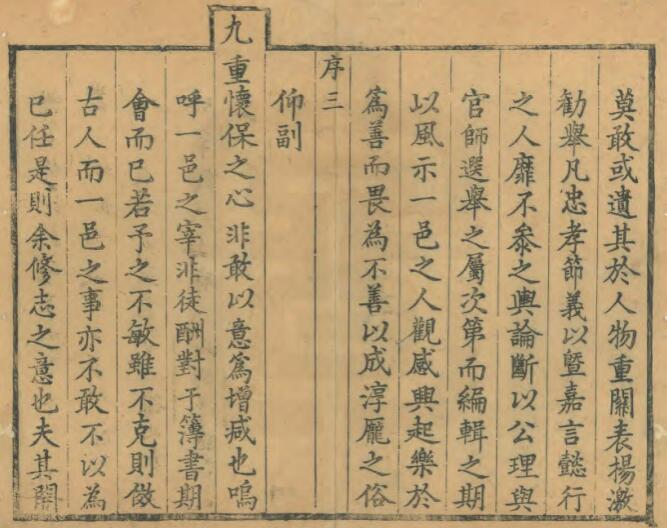 莫敢或遺其於人物重關表揚激
勸舉凡忠孝節義以暨嘉言懿行
之人靡不叅之輿論斷以公理與
官師選舉之屬次第而編輯之期
以風示一邑之人觀感興起樂於
為善而畏為不善以成淳龐之俗
序三
仰副
九重懷保之心非敢以意為增減也嗚
呼一邑之宰非徒酬對于簿書期
會而已若予之不敏雖不克則傚
古人而一邑之事亦不敢不以為
已任是則余修志之意也夫其關